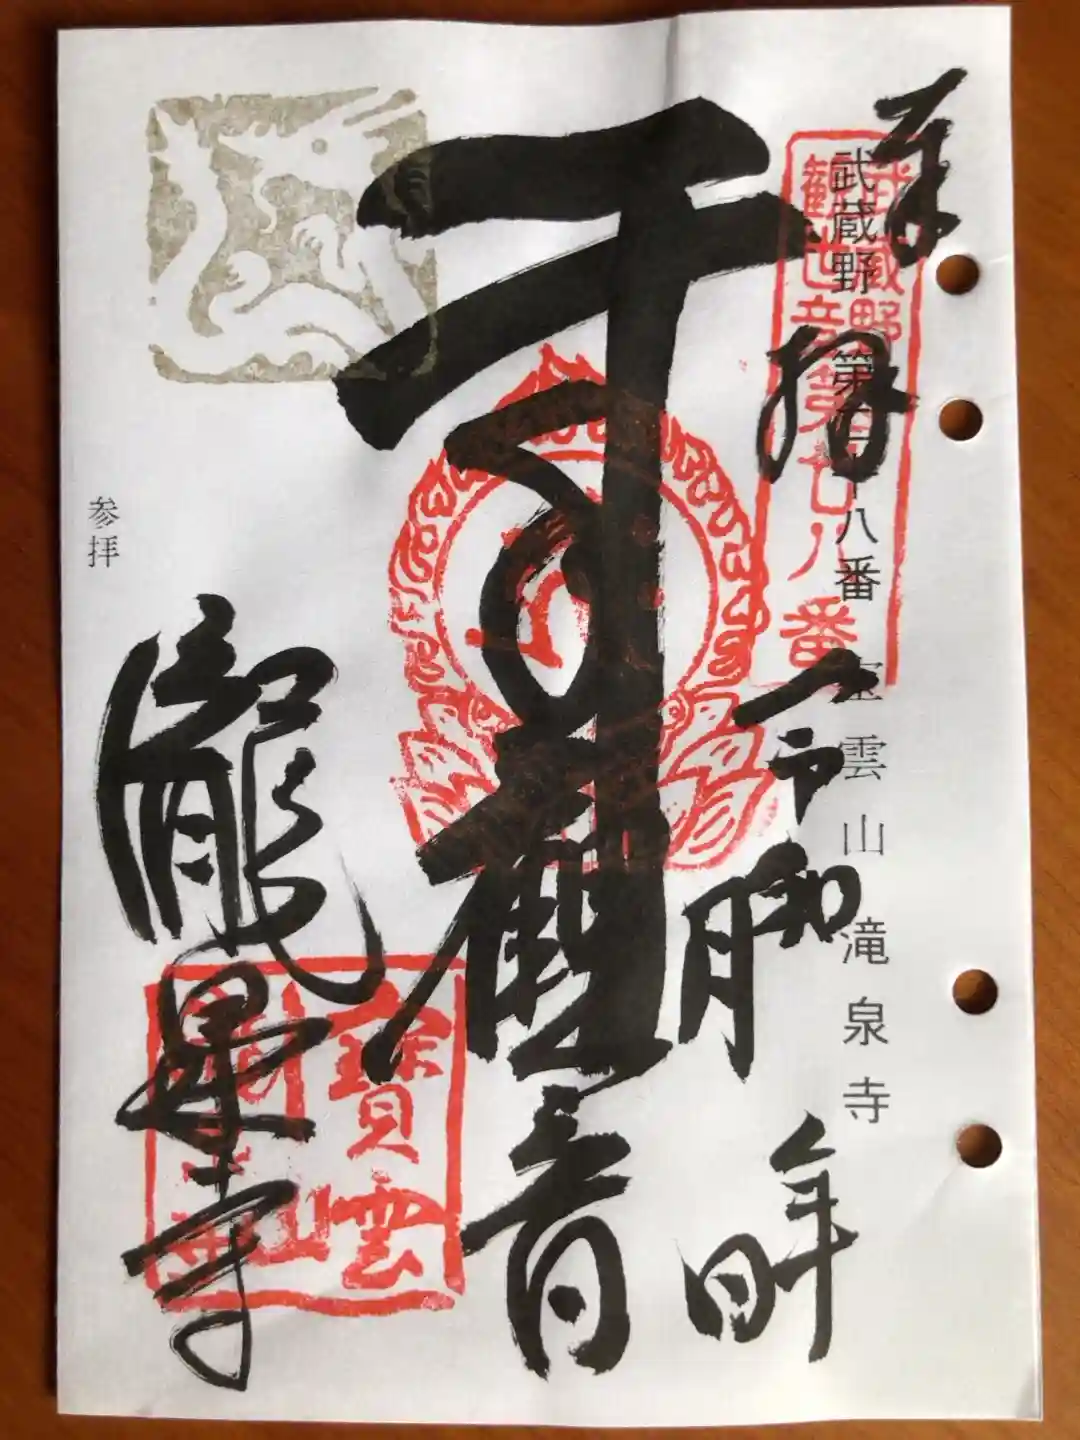 奉拝
令和
年
月
日
武蔵野第二十八番 宝雲山滝泉寺
武蔵野
観世音第廿八番
千手観音
瀧泉寺
寶雲
山
参拝